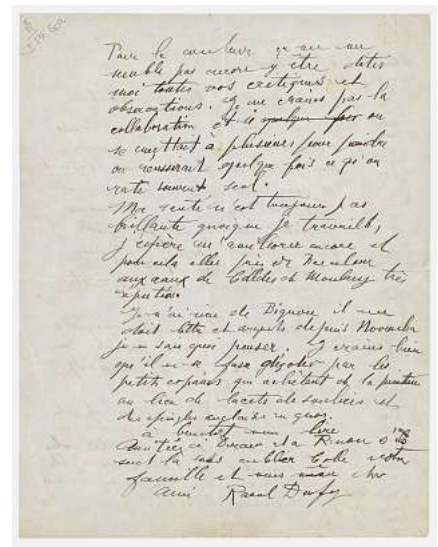 Pour la couleur ça ne me
semble pas encore y être dites
moi toutes vos critiques et
observations. Je ne crains pas la
collaboration et si quelque fois on
se mettait à plusieurs pour peindre
on réussirait quelque fois ce qu'on
rate souvent seul.
Ma santé n'est toujours pas
brillante quoique je travaille,
j'espère m'améliorer encore et
pour cela aller près de Barcelone
aux eaux de Caldes de Montbuy très
réputées.
Je n'ai rien de Bignou il me
doit lettre et argent depuis Novembre
je ne sais que penser. Je crains bien
qu'il ne se fasse dégoter par les
petits copains qui achètent de la peinture
au lieu de lacets de souliers et
des épingles anglaises en gros.
à bientôt mon
Amitiés à Derain et à Renou
sont là sans oublier votre
famille et vous mon cher
ami Raoul Dufy